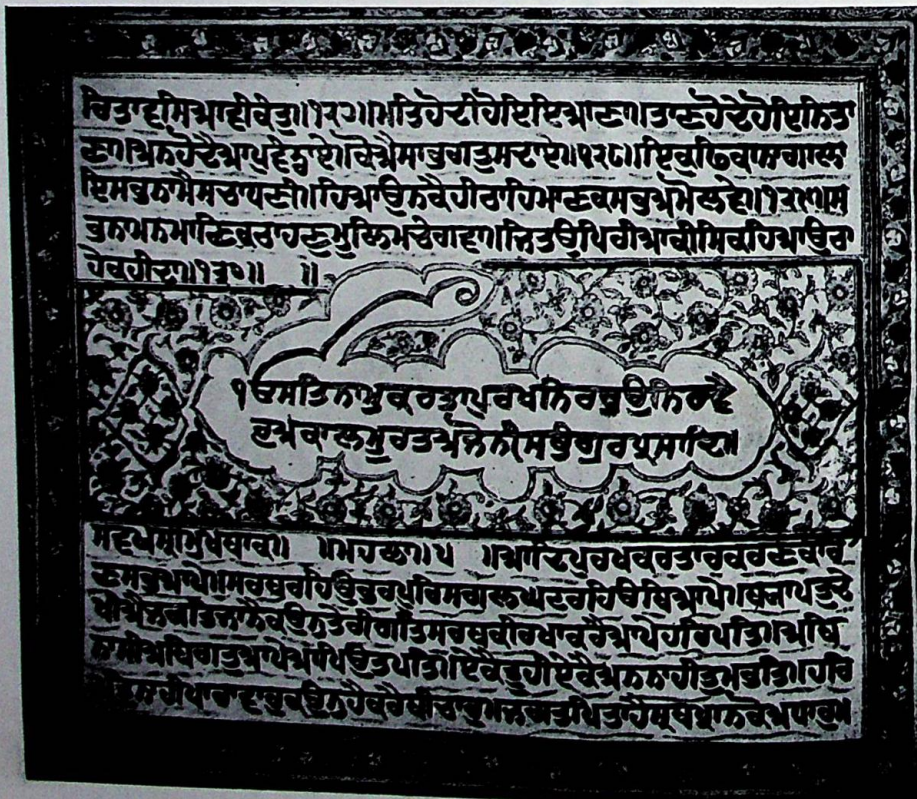 ਤਿਤਾਵਸਿਆਵੀਕੰਤੁ॥੧੨੭॥ਮਤਿਹੋਦੀਹੋਇਇਆਣਾ॥ਤਾਣਹੋਦੇਹੋਇਨਿਤਾ
ਣਾ॥ਅਨਹੋਦੈਆਪੁਵੰਡਾਏ॥ਕੋਐਸਾਭਗਤੁਸਦਾਏ॥੧੨੮॥ਇਕੁਫਿਕਾਨਗਾਲਾ
ਇਸਭਨਾਮੈਸਚਾਧਣੀ॥ਹਿਆਉਨਕੈਹੀਠਾਹਿਮਾਣਕਸਭਅਮੋਲਵੇ॥੧੨੯॥ਸ
ਭਨਾਮਨਮਾਣਿਕਠਾਹਣੁਮੂਲਿਮਚਾਂਗਵਾ॥ਜੇਤਉਪਿਰੀਆਦੀਸਿਕਹਿਆਉਨਠਾ
ਹੇਕਹੀਦਾ॥੧੩੦॥ ॥
੧ਓਸਤਿਨਾਮੁਕਰਤਾਪੁਰਖੁਨਿਰਭਉਨਿਰਵੈ
ਰੁਅਕਾਲਮੂਰਤਿਅਜੂਨੀਸੈਭੰਗੁਰਪ੍ਰਸਾਦਿ॥
ਸਵਯੇਸ੍ਰੀਮੁਖਬਾਕ੍ਯ॥ ॥ਮਹਲਾ॥੫ ॥ਆਦਿਪੁਰਖਕਰਤਾਰਕਰਣਕਾਰ
ਣਸਭਆਪੇ॥ਸਰਬਰਹਿਓਭਰਪੂਰਿਸਗਲਘਟਰਹਿਓਬਿਆਪੇ॥ਬ੍ਯਾਪਤੁਦੇ
ਖੀਐਜਗਤਿਜਾਨੈਕਉਨੁਤੇਰੀਗਤਿਸਰਬਕੀਰਖ੍ਯਾਕਰੈਆਪੇਹਰਿਪਤਿ॥ਅਬਿ
ਨਾਸੀਅਬਿਗਤਆਪੇਆਪਿਉਤਪਤਿ॥ਏਕੈਤੂਹੀਏਕੈਅਨਨਾਹੀਤੁਮਭਤਿ॥ਹਰਿ
ਅੰਤੁਨਾਹੀਪਾਰਾਵਾਰੁਕਉਨੁਹੈਕਰੈਬੀਚਾਰੁਜਗਤਪਿਤਾਹੈਸ੍ਰਬਪ੍ਰਾਨਕੋਅਧਾਰੁ॥